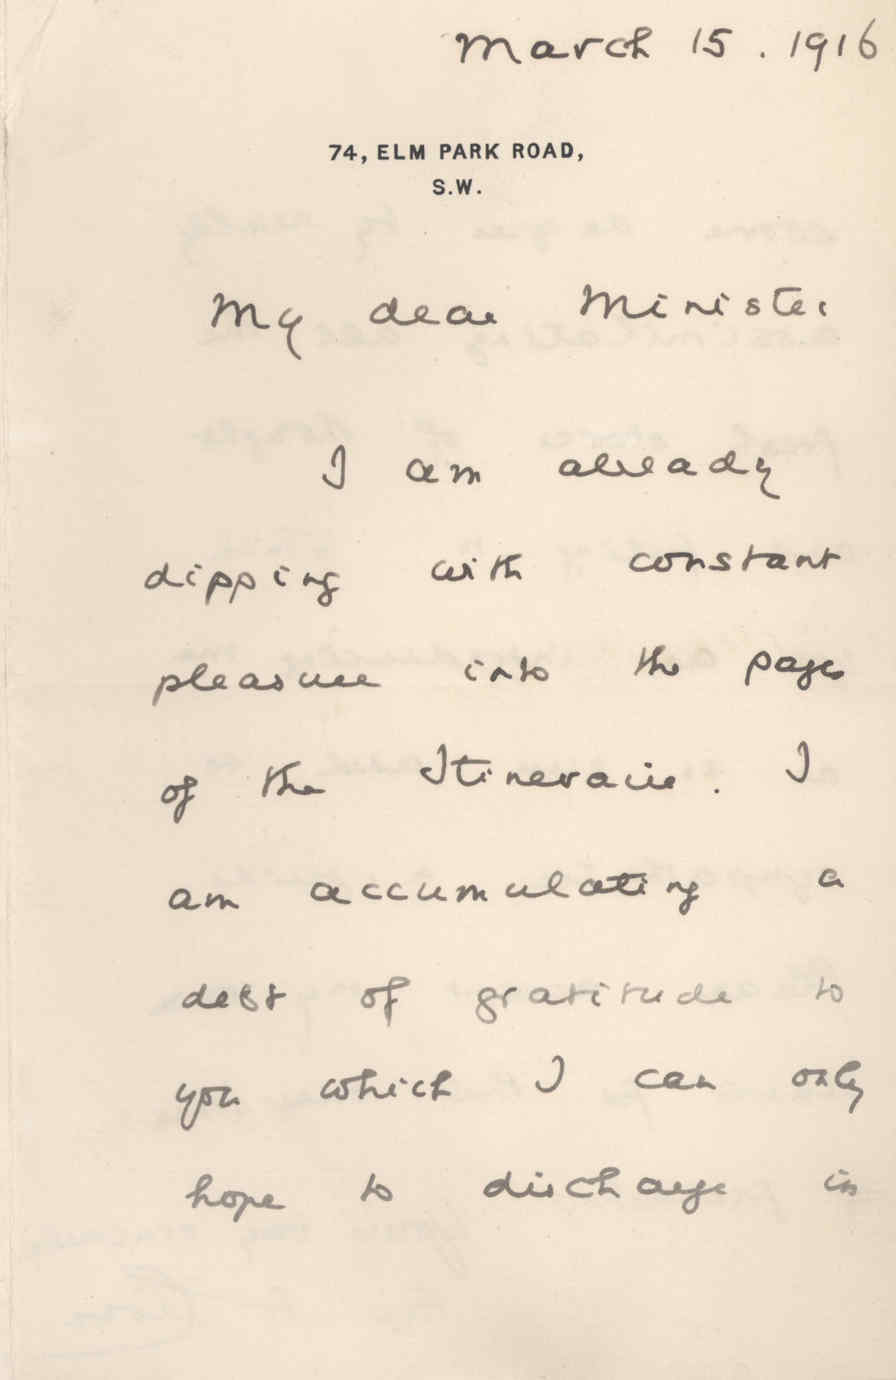 March 15. 1916
74, ELM PARK ROAD,
S.W.
My dear Minister
I am already
dipping with constant
pleasure into the pages
of the Itineraire. I
am accumulating a
debt of gratitude to
you which I can only
hope to discharge in